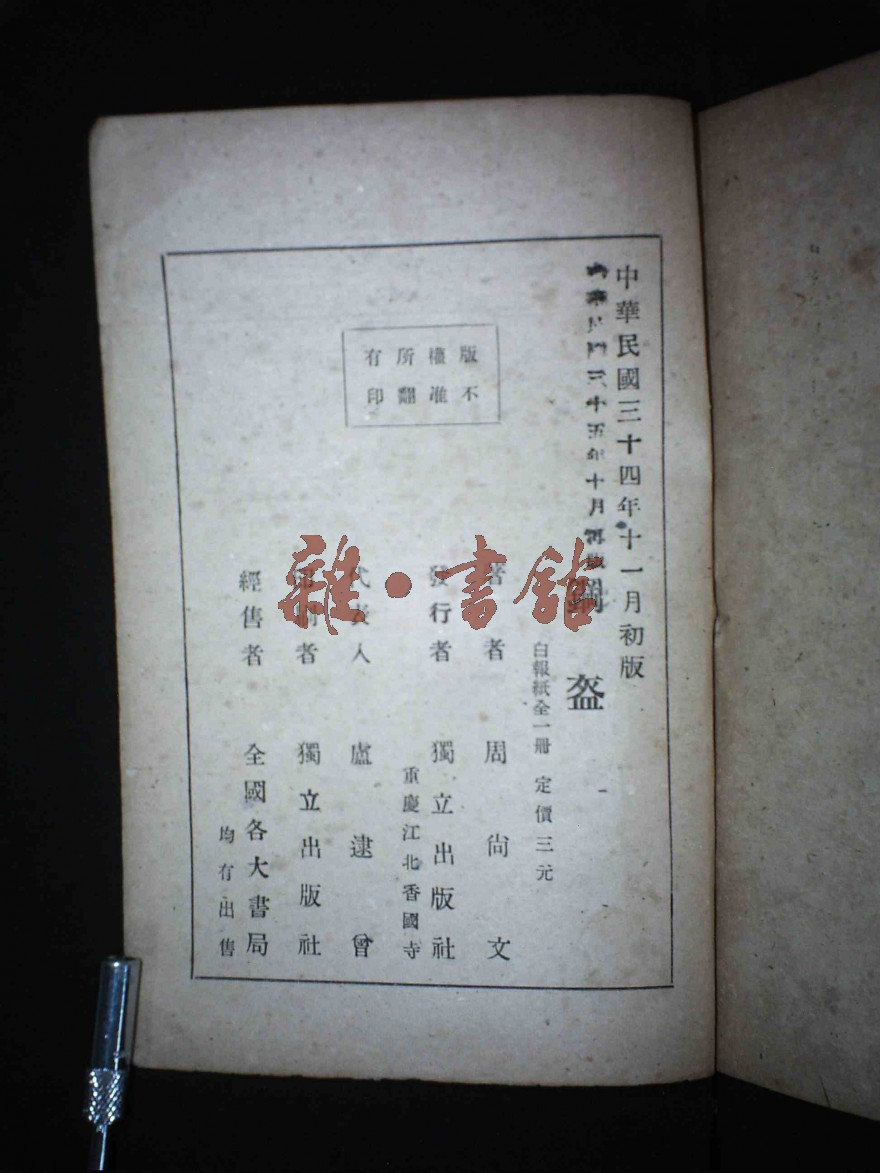 中華民國三十四年十一月初版
中華民國三十五年十月再版
鋼盔
白報紙全一冊 定價三元
著者 周尙文
發行者 獨立出版社
重慶江北香國寺
代表人 盧逮曾
印刷者 獨立出版社
經售者 全國各大書局
均有出售
版權所有
不准翻印
雜·書館